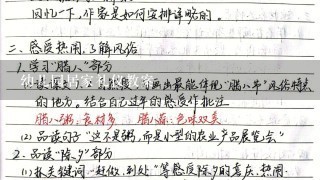 回忆一下，作家是如何安排详略的。
二、感受热闹，了解风俗
1. 学习“腊八”部分
出最能体现“腊八节”风俗特点
的地方。结合自己过年的感受作批注
腊八粥：食材多 腊八蒜：色味双美
(2) 品读句子“这不是粥，而是小型的农业产品展览会”
2. 品读“除夕”部分
(1) 抓关键词“赶做、到处”等感受除夕的喜庆、热闹.